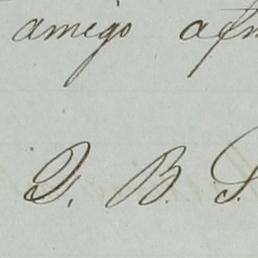 amigo afm
D. B. S.